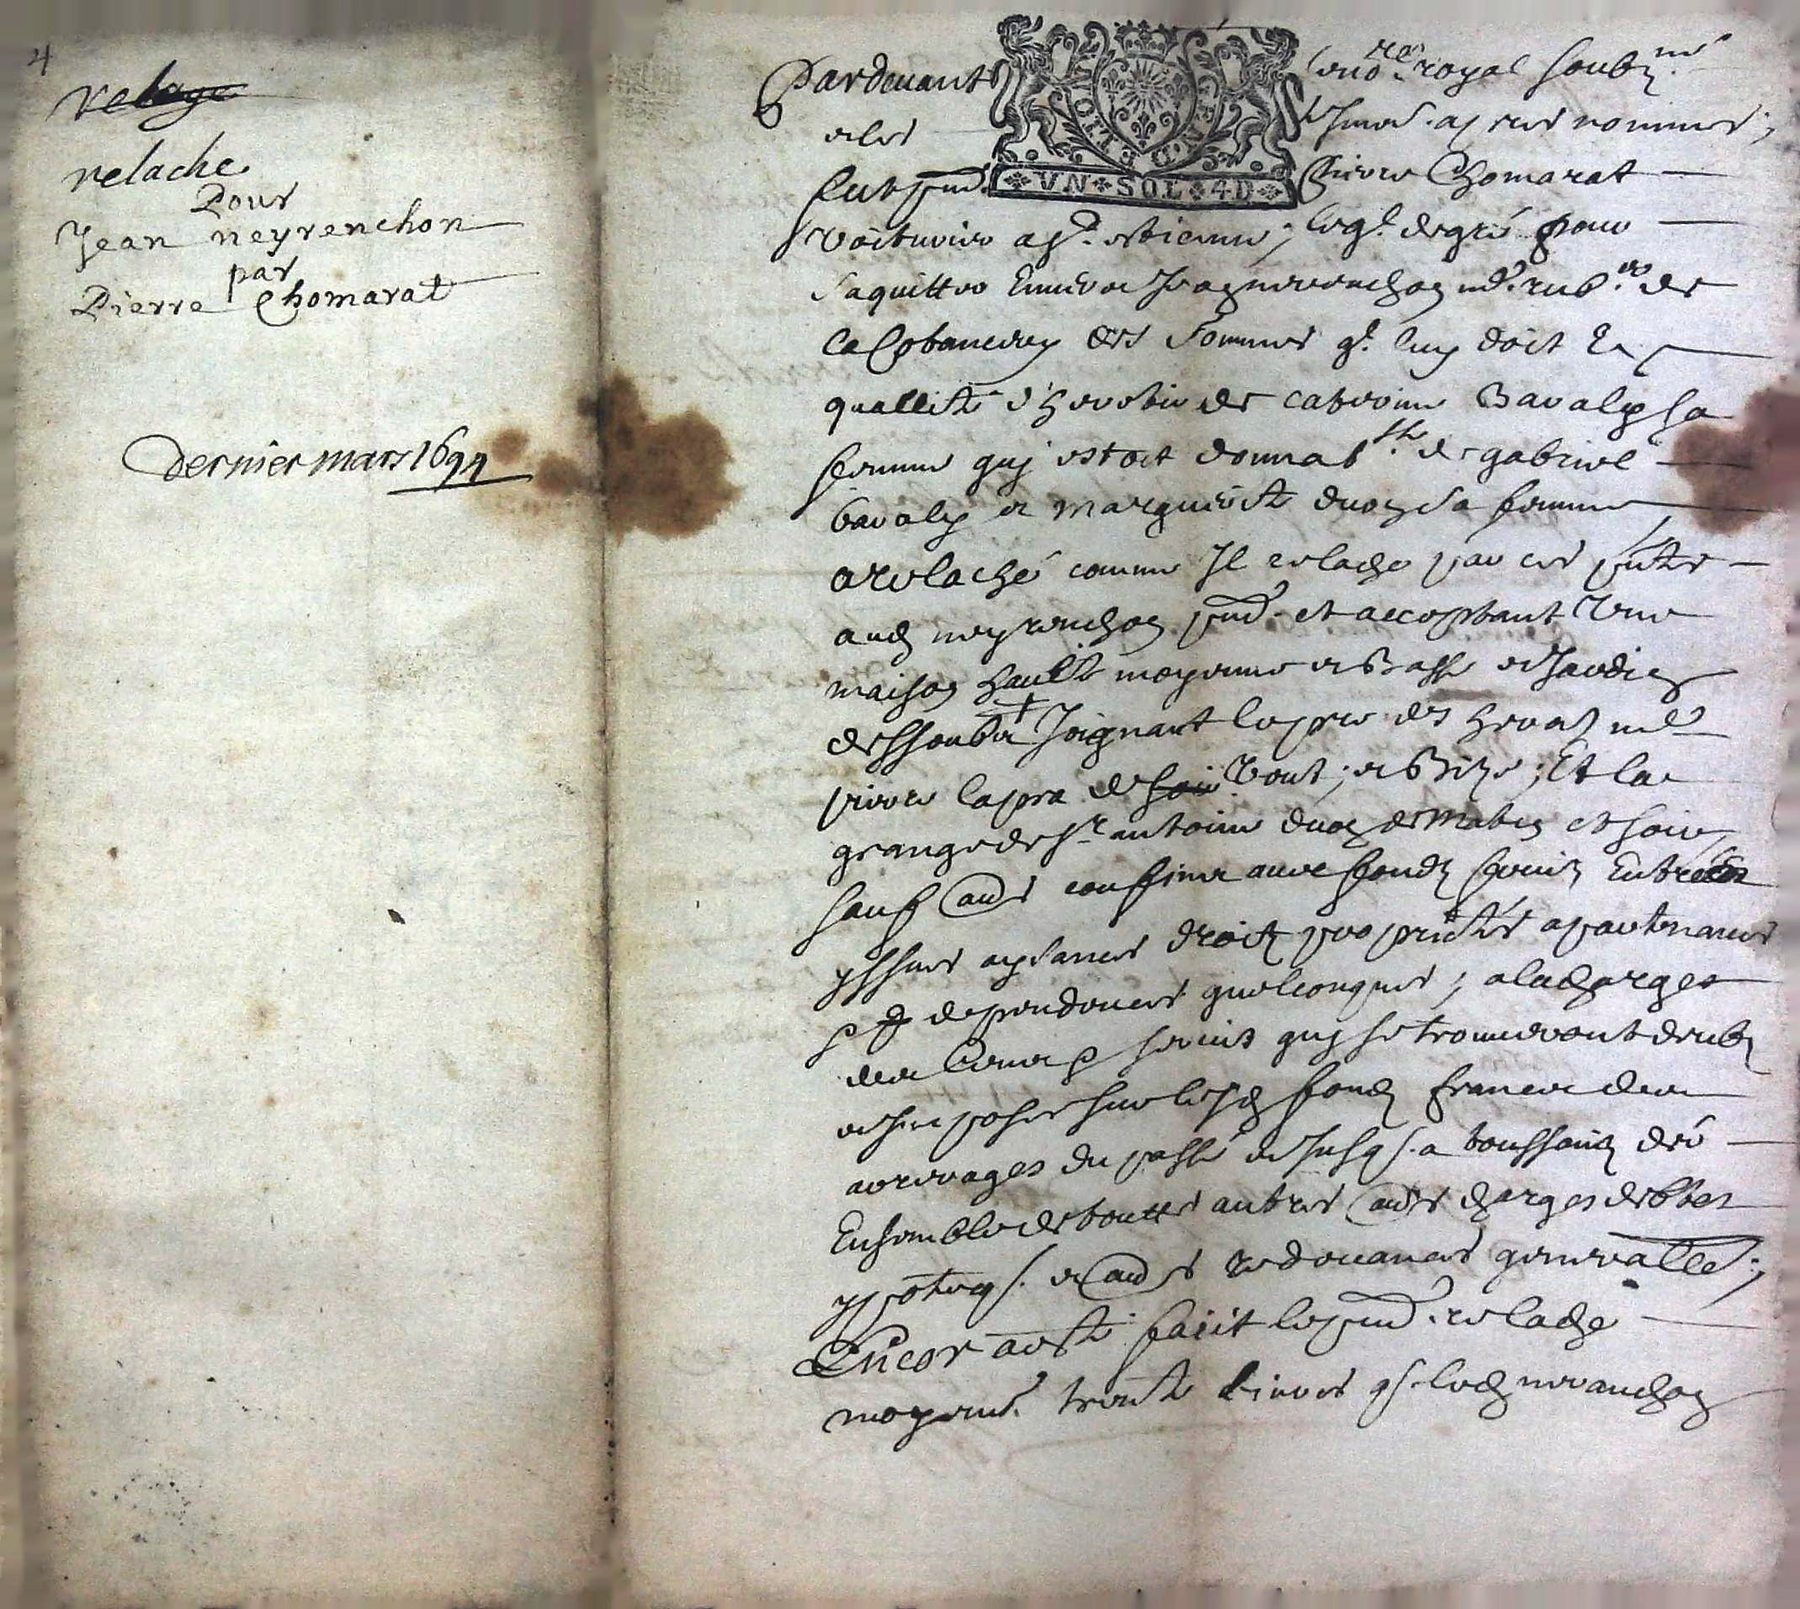 4
relage
relache
Pour
Jean neyrenchon
par
Pierre Chomarat
dernier mars 1694
Pardevant le no.re royal soub.né
et les tesmoins apres nommes;
fut pnt. Pierre Chomarat
GENERALITE DE LYON
VN SOL 4D
voiturier a St. estienne; leql. de gré pour
saquitter envers Jean neyrenchon md. rub.er de
des sommes ql. luy doit En
quallité d'heretier de caterine Baralon sa
femme quj estoit donnat.re de gabriel
baralon et marguerite duon sa femme
a relaché comme Il relache par ces pntes
aud neyrenchon pnt. et acceptant une
maison haulte moyenne et Basse et Jardin
Joignant le pre des hers md
pierre lapra de soir vent; et Bize; Et la
grange de sr. antoine duon de matin et soir
sauf aues confins avec fondz Entrées
yssues aysances droictz proprietés apartenances
et dependences quelconques; a la charge
des cens et servis quj se trouveront deubz
et Imposes sur lesd fondz francz des
arrerages du passé et Jusq. a toussainz der
Ensemble de touttes autres aues charges debtes
ypoteqs. et aues redevances generalles;
Encor a esté faict le pnt. relache
moyent. trente livres q. led neyranchon